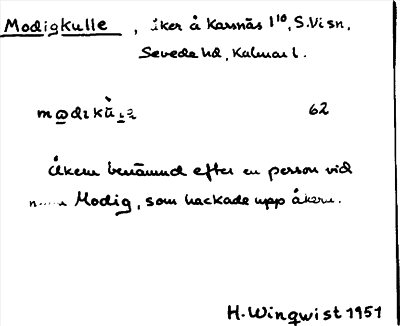 Modigkulle, åker å Karsnäs 1¹⁰, S. Vi sn,
Sevede hd, Kalmar l.
62
Åkern benämnd efter en person vid
Modig, som hackade upp åkern.
H. Winqwist 1951